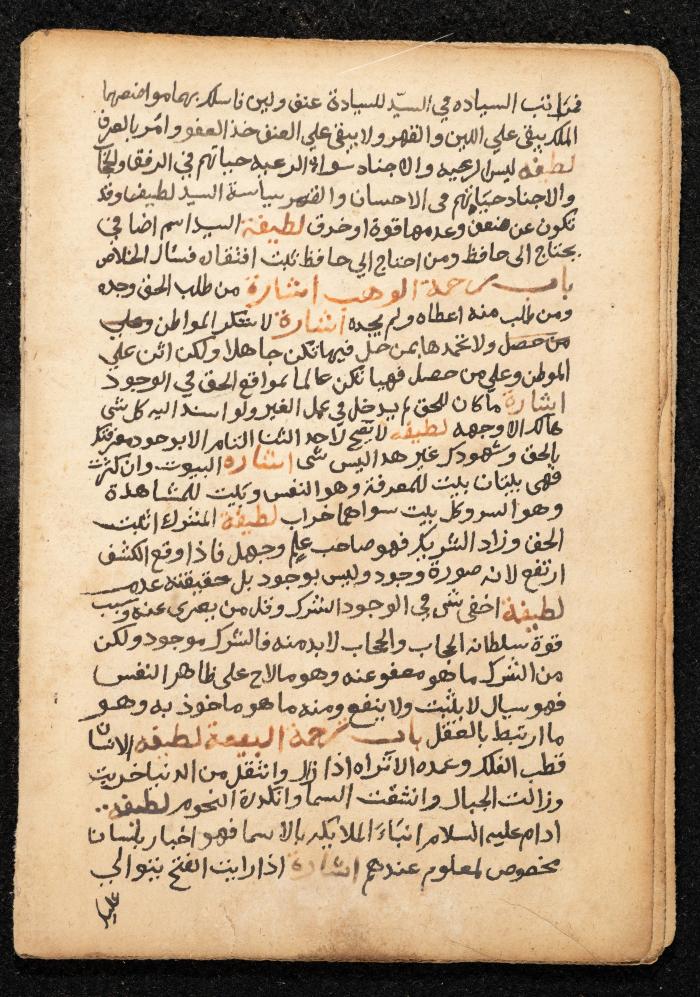 فمراتب السياده في السيد للسيادة عنق ولين فاسلك بهما مواضعهما
الملك يبقى علي اللين والقهر ولا يبقى علي العنق خذ العفو وامر بالعرف
لطيفه ليس الرعيه والاجناد سواء الرعيه حياتهم في الرفق
والاجناد حياتهم في الاحسان والقهر سياسة السيد لطيفه وقد
تكون عن ضعف وعدمها قوة او خرق لطيفة السيد اسم اضافي
يحتاج الى حافظ ومن احتاج الي حافظ ثبت افتقاره فسال الخلاص
باب ترجمة الوهب اشارة من طلب الحق وجده
ومن طلب منه اعطاه ولم يجده اشارة لا تنكر المواطن وعلى
من حصل ولا تحمدها بمن حل فيها تكن جاهلا ولكن اثن علي
الموطن وعلي من حصل فيها تكن عالما بمواقع الحق في الوجود
اشارة ما كان للحق لم يدخل في عمل الغير ولو اسند اليه كل شي
هالك الا وجهه لطيفه لا يصح لاحد الثنا التام الا بوجود معرفتك
بالحق وشهودك غير هذا ليس شي اشاره البيوت وان كثرت
فهي بيتان بيت للمعرفة وهو النفس وبيت للمشاهدة
وهو السر وكل بيت سواهما خراب لطيفة المشرك اثبت
الحق وزاد الشريك فهو صاحب علم وجهل فاذا وقع الكشف
ارتفع لانه صورة وجود وليس بوجود بل حقيقته عدم
لطيفة اخفى شي في الوجود الشرك وقل من يعرى عنه وسبب
قوة سلطانه الحجاب والحجاب لا بد منه فالشرك موجود ولكن
من الشرك ما هو معفو عنه وهو ما لاح على ظاهر النفس
فهو سيال لا يثبت ولا ينفع ومنه ما هو ماخوذ به وهو
ما ارتبط بالعقل باب ترجمة البيعة لطيفه الانسان
قطب الفلك وعمده الا تراه اذا زال وانتقل من الدنيا خربت
وزالت الجبال وانشقت السما وانكدرة النجوم لطيفه
ادام عليه السلام انباء الملايكه بالاسما فهو اخبار بلسان
مخصوص لمعلوم عندهم اشارة اذا رايت الفتح يتوالي
عليك